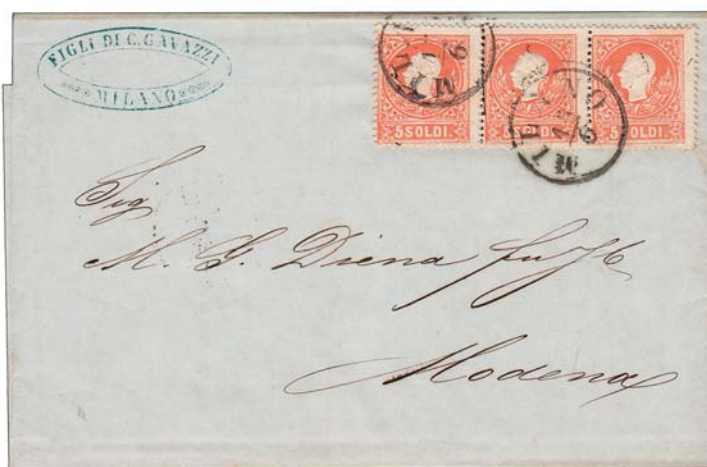 FIGLI DI C. GAVAZZI
MILANO
5 SOLDI.
5 SOLDI.
5 SOLDI.
Sig
M. G. Diena fu
Modena